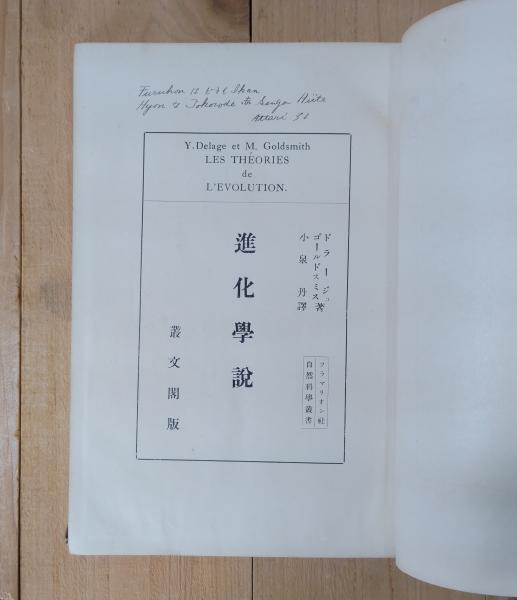 Furuhon は
Hyon na Tokorode
Y. Delage et M. Goldsmith
LES THÉORIES
de
L'EVOLUTION.
ドラージュ
ゴールドスミス著
小泉丹譯
進化學說
フラマリオン社
自然科學叢書
叢文閣版